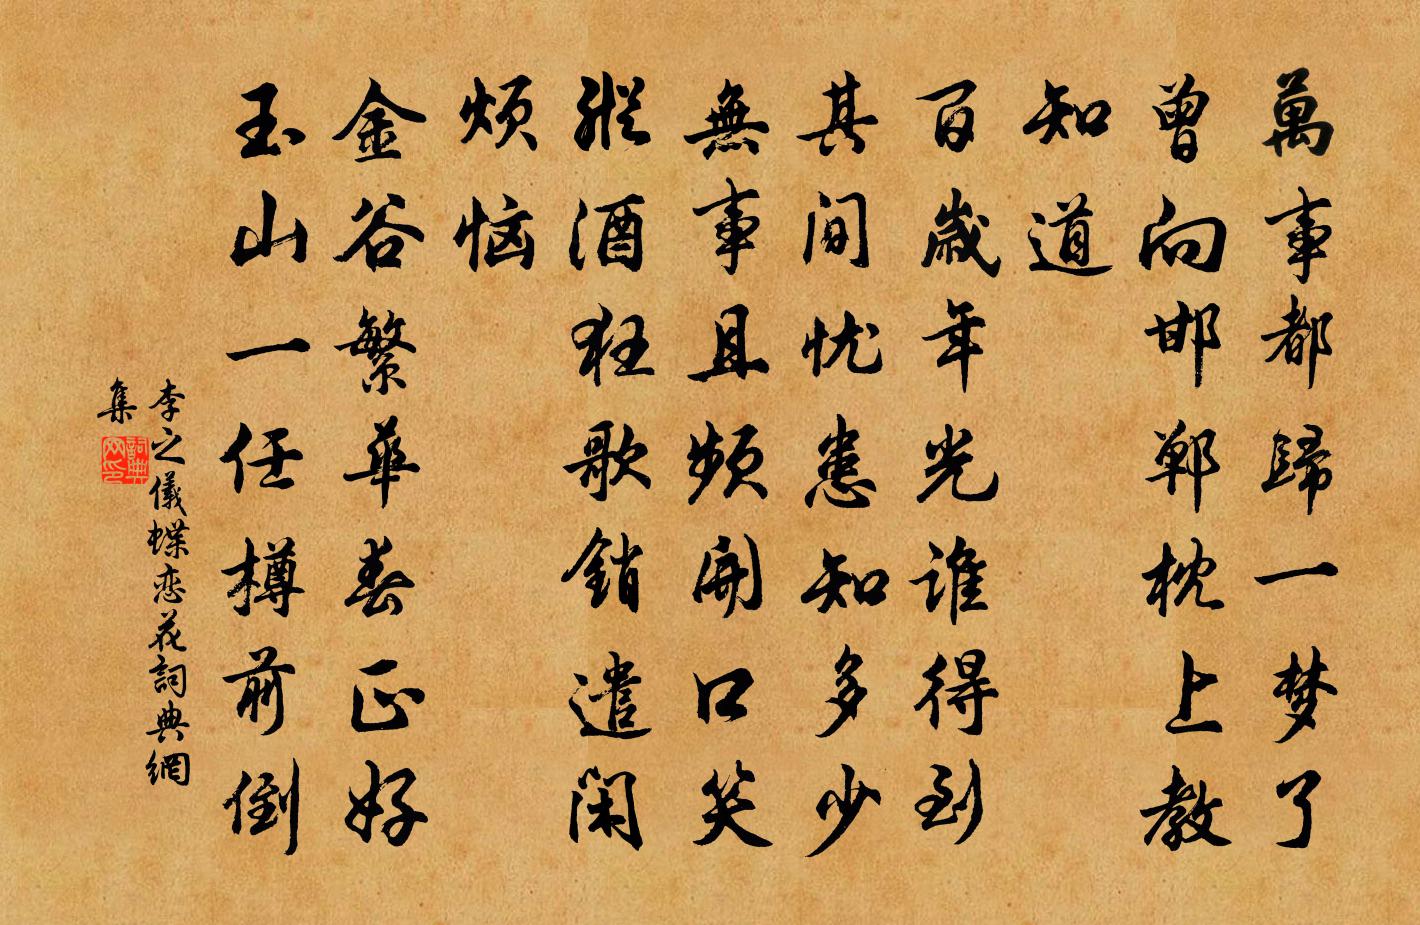 萬事都歸一梦了
曾向邯鄲枕上教
知道
百歲年光誰得到
其間忧患知多少
無事且頻開口笑
縱酒狂歌銷遣闲
烦恼
金谷繁華春正好
玉山一任樽前倒
李之儀蝶恋花詞典網
集
詞典
网印